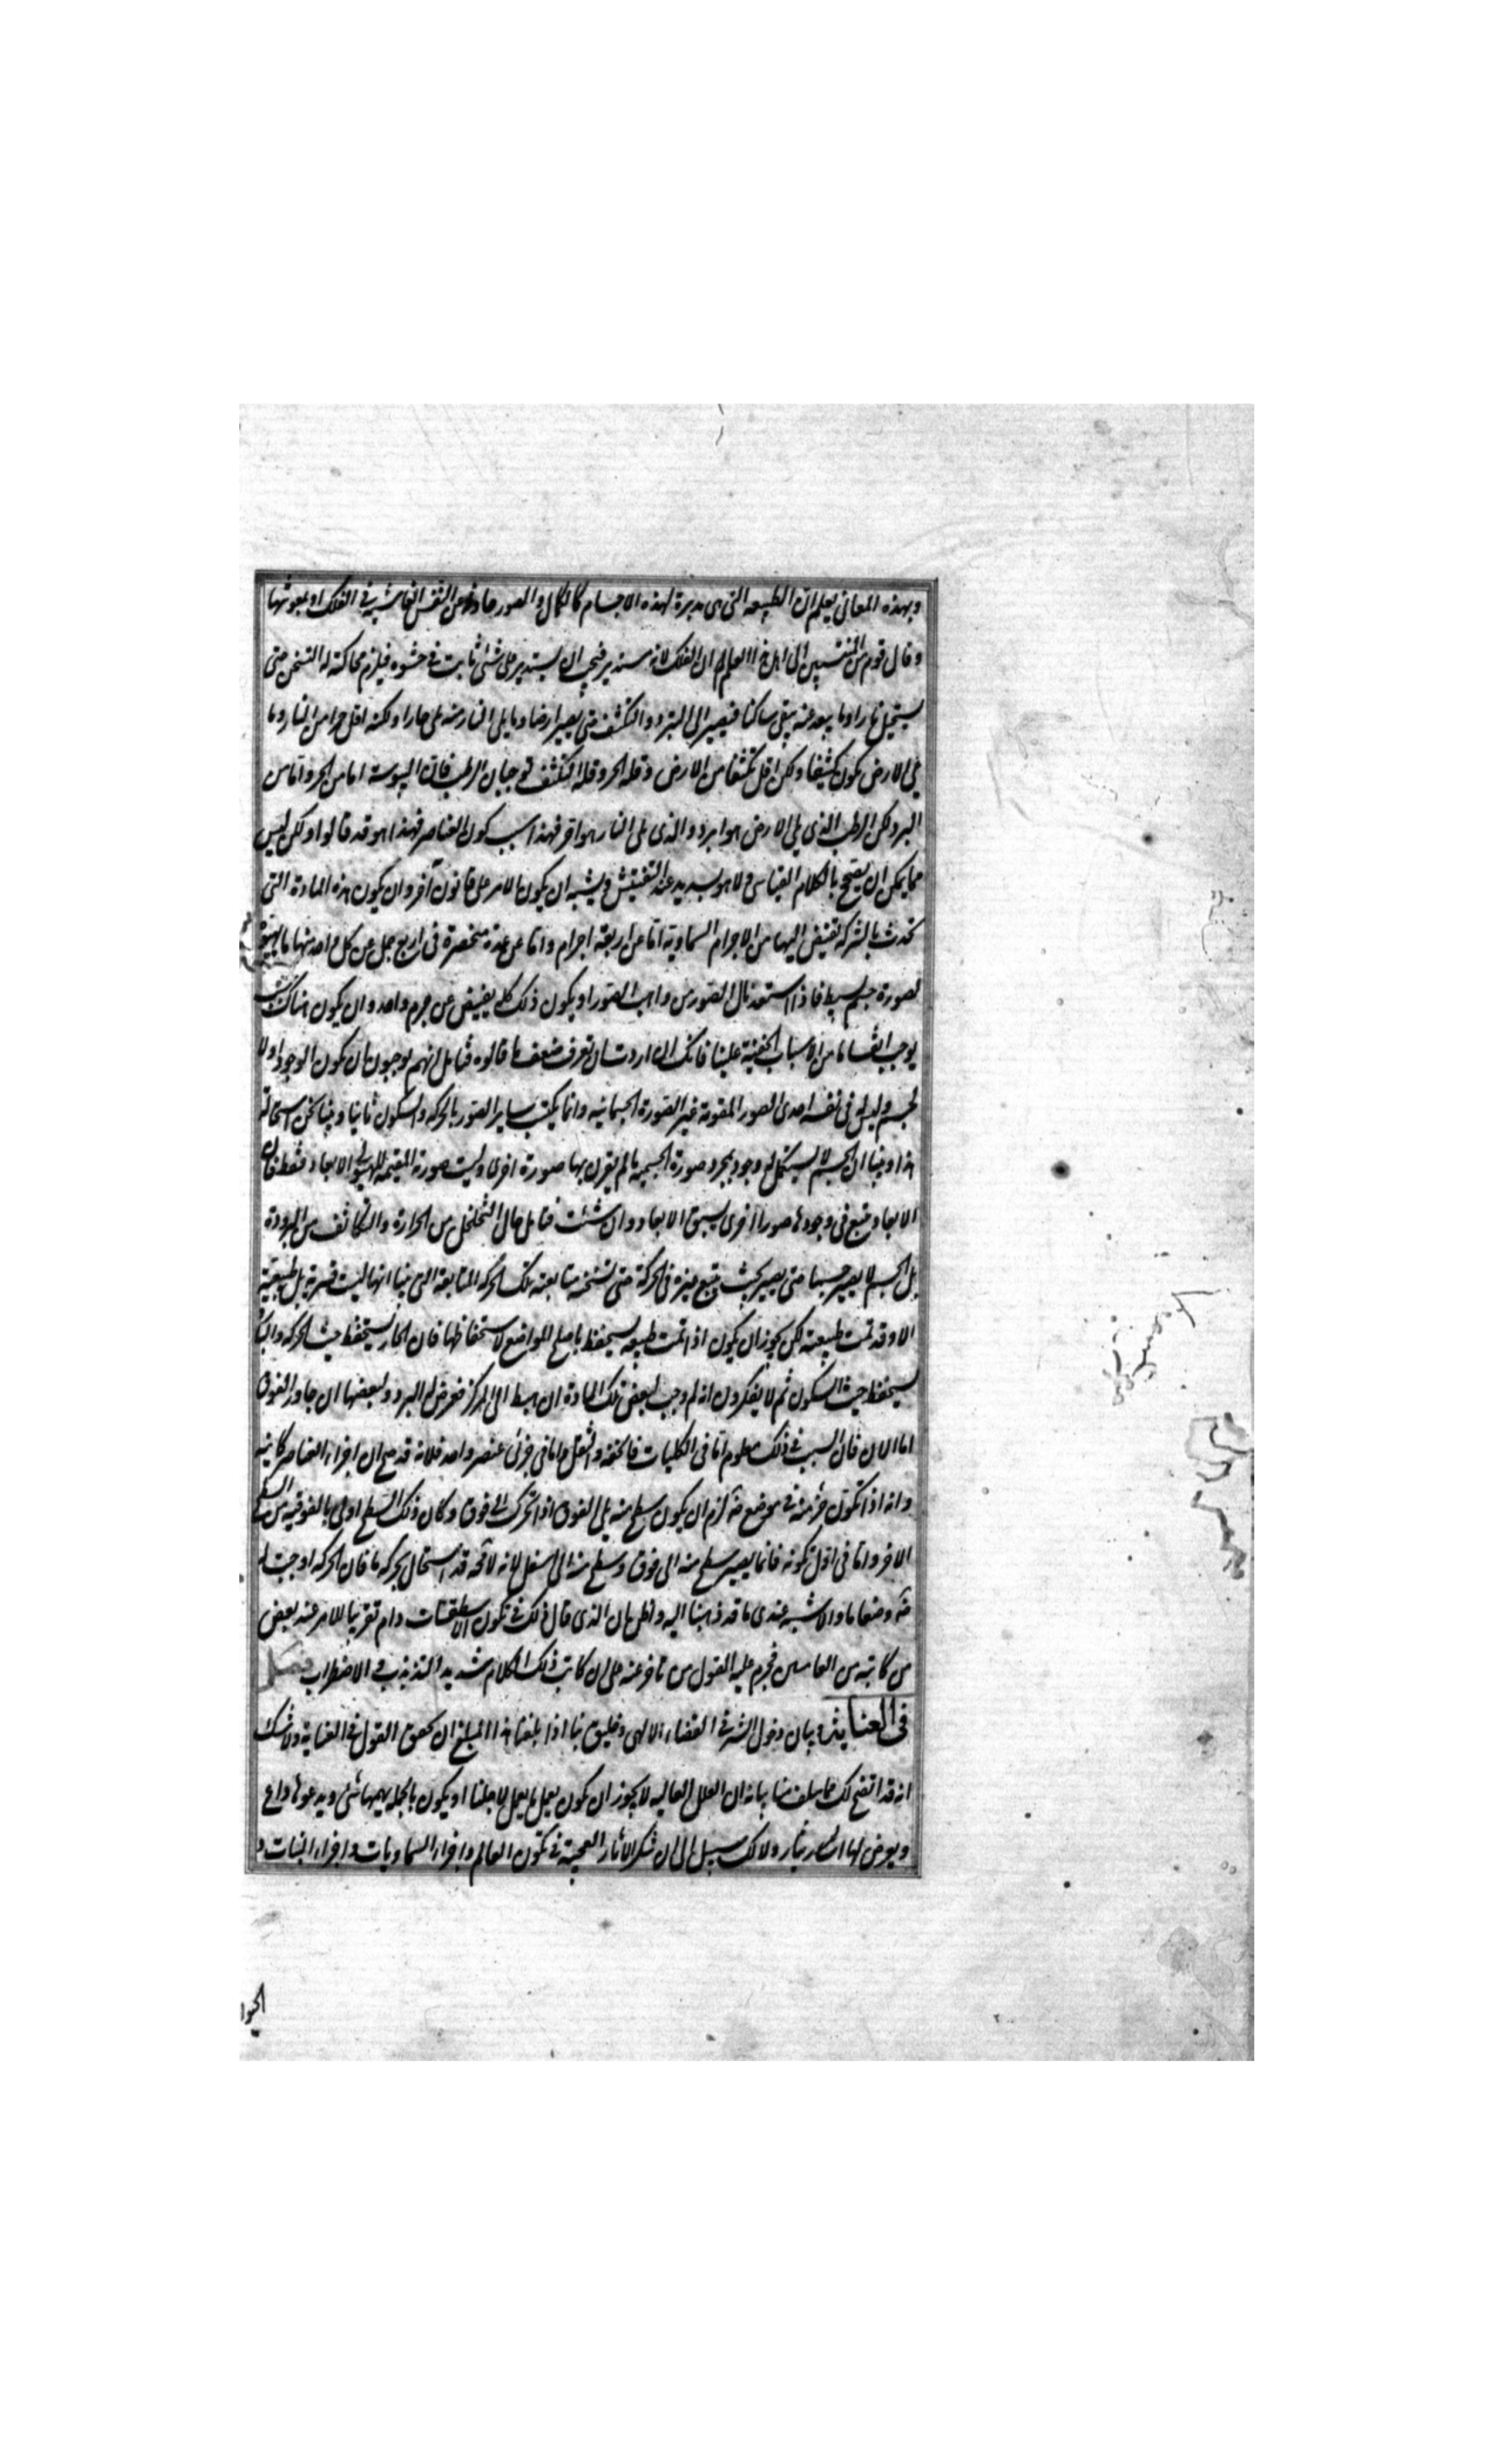 وبهذه المعانى يعلم ان الطبيعه التى هى مدبرة لهذه الاجسام كالكمال والصور حادثة عن النفس الفاشية فى الفلك او بمعونتها
وقال قوم من المنتسبين الى اهل هذا العلم ان الفلك لانه مستدير فيجب ان يستدير على شئ ثابت فى حشوه فيلزم محاكته له التسخن حتى
يستحيل نارا وما يبعد عنه يبقى ساكنا فيصير الى التبرد والتكثف حتى يصير ارضا وما يلى النار منه يكون حارا ولكنه اقل حرا من النار وما
يلى الارض يكون كثيفا ولكن اقل تكثفا من الارض وقلة الحر وقلة التكثف توجبان الرطب فان اليبوسة اما من الحر واما من
البرد لكن الرطب الذى يلى الارض هو ابرد والذى يلى النار هو احر فهذا سبب كون العناصر فهذا هو قد قالوا ولكن ليس
مما يمكن ان يصح بالكلام القياسى ولا هو بسديد عند التفتيش ويشبه ان يكون الامر على قانون آخر وان يكون هذه المادة التى
تحدث بالشركة تفيض اليها من الاجرام السماوية اما عن اربعة اجرام واما عن عدة منحصرة فى اربع جمل عن كل واحد منها ما يهيئه
لصورة جسم بسيط فاذا استعد نال الصور من واهب الصور او يكون ذلك كله يفيض عن جرم واحد وان يكون هناك سبب
يوجب انقساما من الاسباب الخفية علينا فانك ان اردت ان تعرف ضعف ما قالوه فتامل انهم يوجبون ان يكون الوجود اولا
لجسم وليس له فى نفسه احدى الصور المقومة غير الصورة الجسمانيه وانما يكتسب ساير الصور بالحركه والسكون ثانيا وبينا نحن استحالة
هذا وبينا ان الجسم لا يستكمل له وجود بمجرد صورة الجسميه ما لم يقرن بها صورة اخرى وليست صورة المقيمه للهيولى الابعاد فقط فان
الابعاد يتبع فى وجودها صورا اخرى يسبق الابعاد وان شئت فتامل حال التخلخل من الحرارة والتكاثف من البرودة
بل الجسم لا يصير جسما حتى يصير بحيث يتبع غيره فى الحركة حتى تسخنه متابعته تلك الحركة المتابعة التى بينا انها ليست قسرية بل طبيعية
الا وقد تمت طبيعته لكن يجوز ان يكون اذا تمت طبيعته يستحفظ باصلح المواضع لاستحفاظها فان الحار يستحفظ حيث الحركة والبارد
يستحفظ حيث السكون ثم لا يفكرون انه لم وجب لبعض تلك المادة ان هبط الى المركز فعرض له البرد ولبعضها ان جاور الفوق
اما الان فان السبب فى ذلك معلوم اما فى الكليات فالخفة والثقل واما فى جزئى عنصر واحد فلانه قد صح ان اجزاء العناصر كاينه
وانه اذا تكون جزء منه فى موضع ضرورة لزم ان يكون سطح منه يلى الفوق اذا تحرك الى فوق وكان ذلك السطح اولى بالفوقيه من السطح
الاخر واما فى اول تكونه فانما يصير سطح منه الى فوق وسطح منه الى اسفل لانه لا محه قد استحال بحركة ما فان الحركه اوجبت له
ضرورة وضعا ما والاشبه عندى ما قد ذهبنا اليه واظن ان الذى قال ذلك فى تكون الاسطقسات رام تقريبا للامر عند بعض
من كاتبه من العاميين فجزم عليه القول من تاخر عنه على ان كاتب ذلك الكلام شديد التذبذب فى الاضطراب فصل
فى العناية وبيان دخول الشر فى القضاء الالهى وخليق بنا اذا بلغنا هذا المبلغ ان نحقق القول فى العناية ولا شك
انه قد اتضح لك مما سلف منا بيانه ان العلل العاليه لا يجوز ان يكون يعمل ما يعمل لاجلنا او يكون بالجملة يهمها شئ ويدعوها داع
ويعرض لها ايثار ولا لك سبيل الى ان تنكر الاثار العجيبة فى تكون العالم واجزاء السماويات واجزاء النبات و
الحيوا